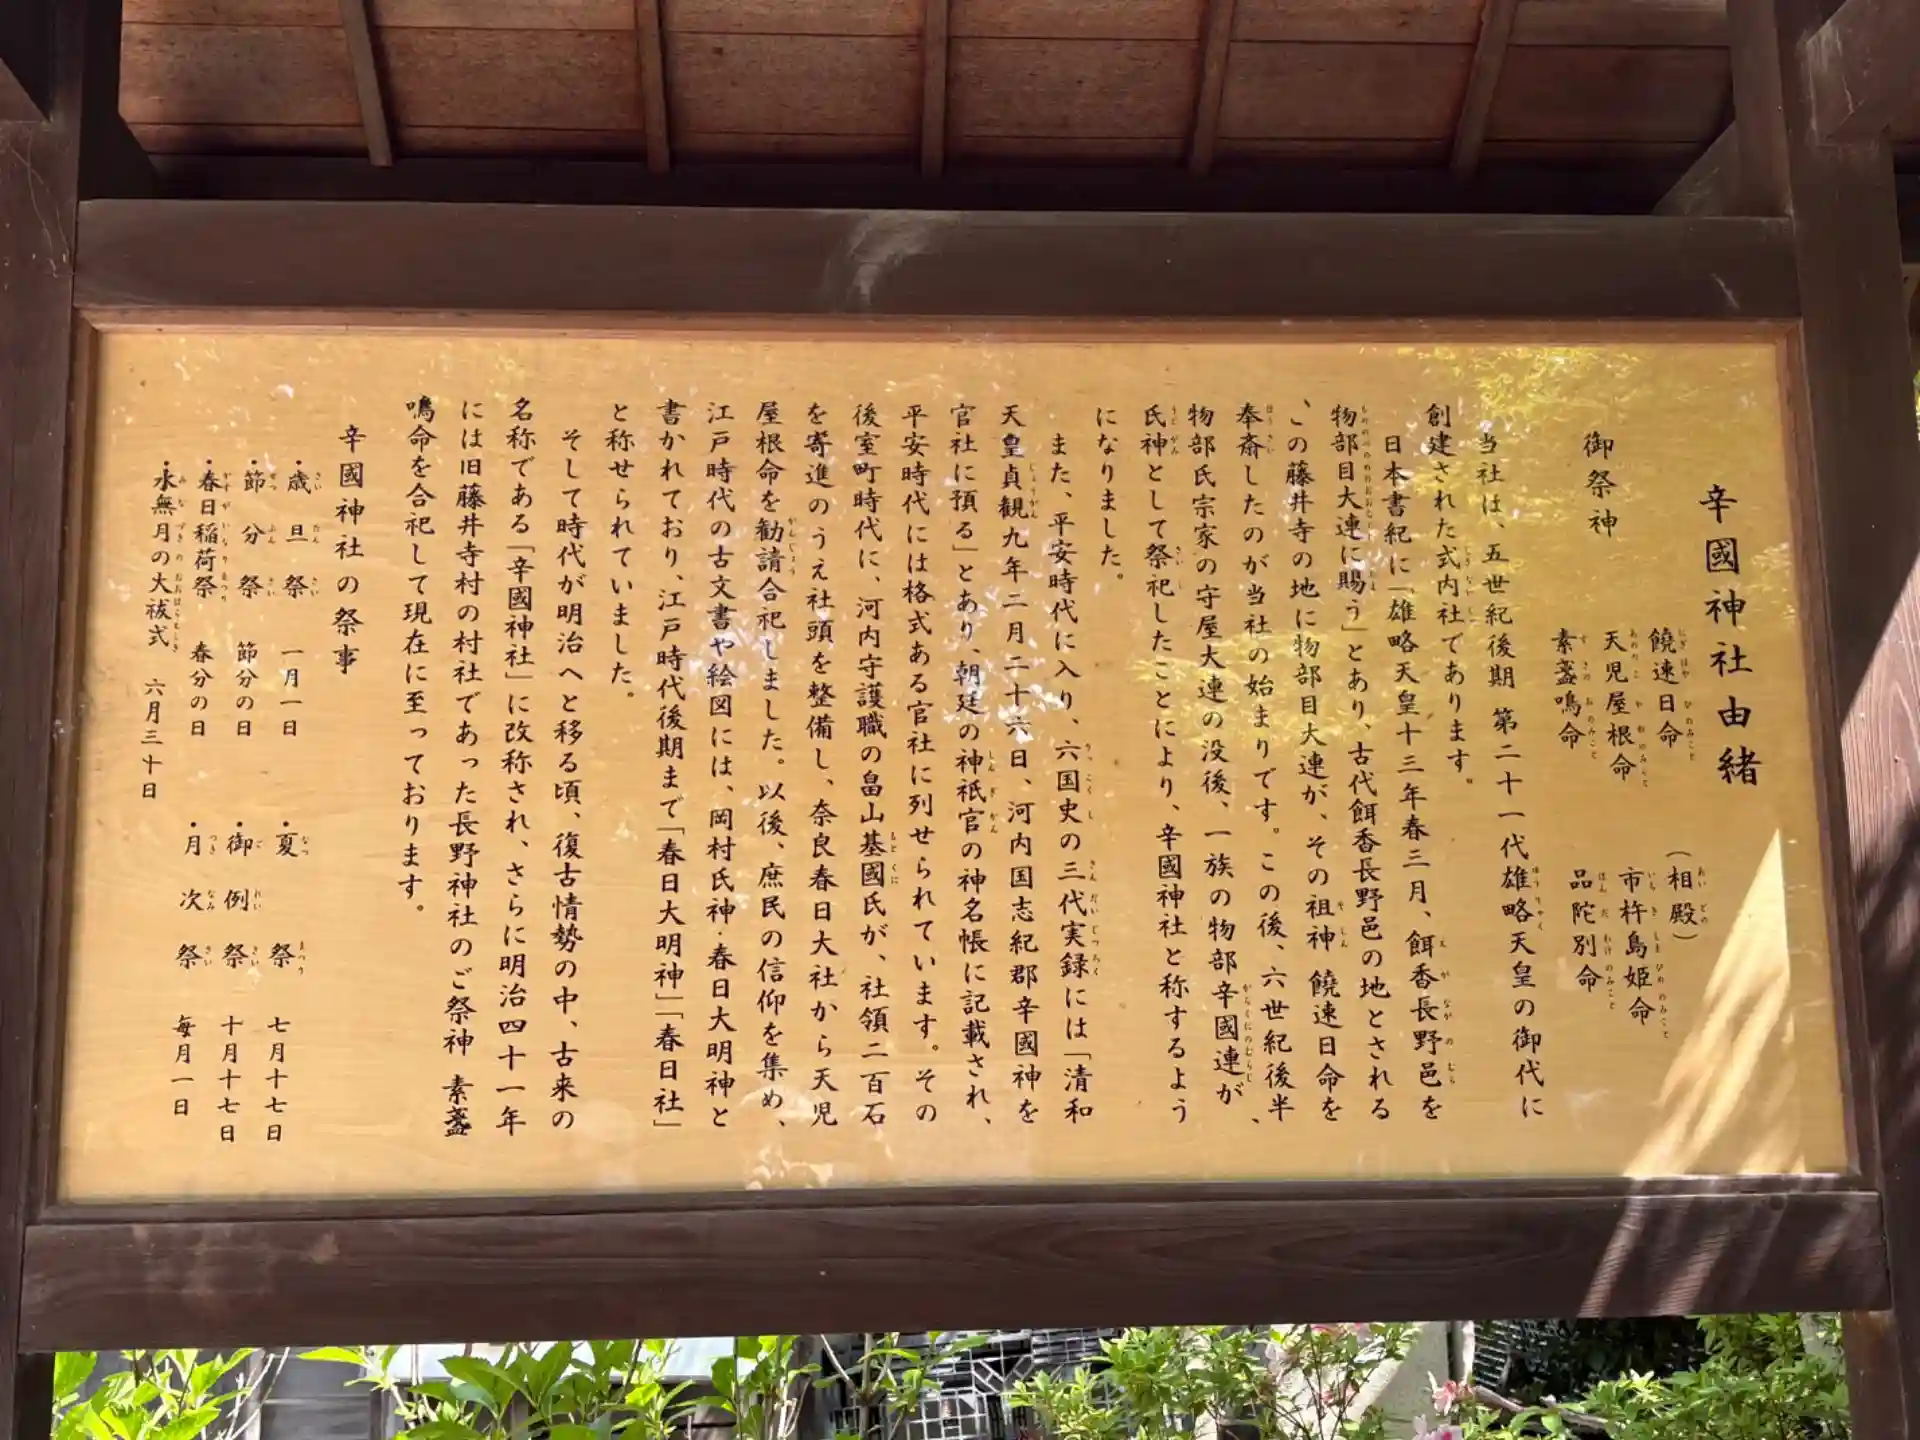 辛國神社由緒
御祭神
饒速日命
天児屋根命
素盞嗚命
（相殿）
市杵島姫命
品陀別命
当社は、五世紀後期 第二十一代雄略天皇の御代に
創建された式内社であります。
日本書紀に「雄略天皇十三年春三月、餌香長野邑を
物部目大連に賜う」とあり、古代餌香長野邑の地とされる
この藤井寺の地に物部目大連が、その祖神 饒速日命を
奉斎したのが当社の始まりです。この後、六世紀後半、
物部氏宗家の守屋大連の没後、一族の物部辛國連が
氏神として祭祀したことにより、辛國神社と称するよう
になりました。
また、平安時代に入り、六国史の三代実録には「清和
天皇貞観九年二月二十六日、河内国志紀郡辛國神を
官社に預る」とあり、朝廷の神祇官の神名帳に記載され、
平安時代には格式ある官社に列せられています。その
後室町時代に、河内守護職の畠山基國氏が、社領二百石
を寄進のうえ社頭を整備し、奈良春日大社から天児
屋根命を勧請合祀しました。以後、庶民の信仰を集め、
江戸時代の古文書や絵図には、岡村氏神・春日大明神と
書かれており、江戸時代後期まで「春日大明神」「春日社」
と称せられていました。
そして時代が明治へと移る頃、復古情勢の中、古来の
名称である「辛國神社」に改称され、さらに明治四十一年
には旧藤井寺村の村社であった長野神社のご祭神 素盞
嗚命を合祀して現在に至っております。
辛國神社の祭事
・歳旦祭 一月一日
・節分祭 節分の日
・春日稲荷祭 春分の日
・水無月の大祓式 六月三十日
・夏祭 七月十七日
・御例祭 十月十七日
・月次祭 毎月一日